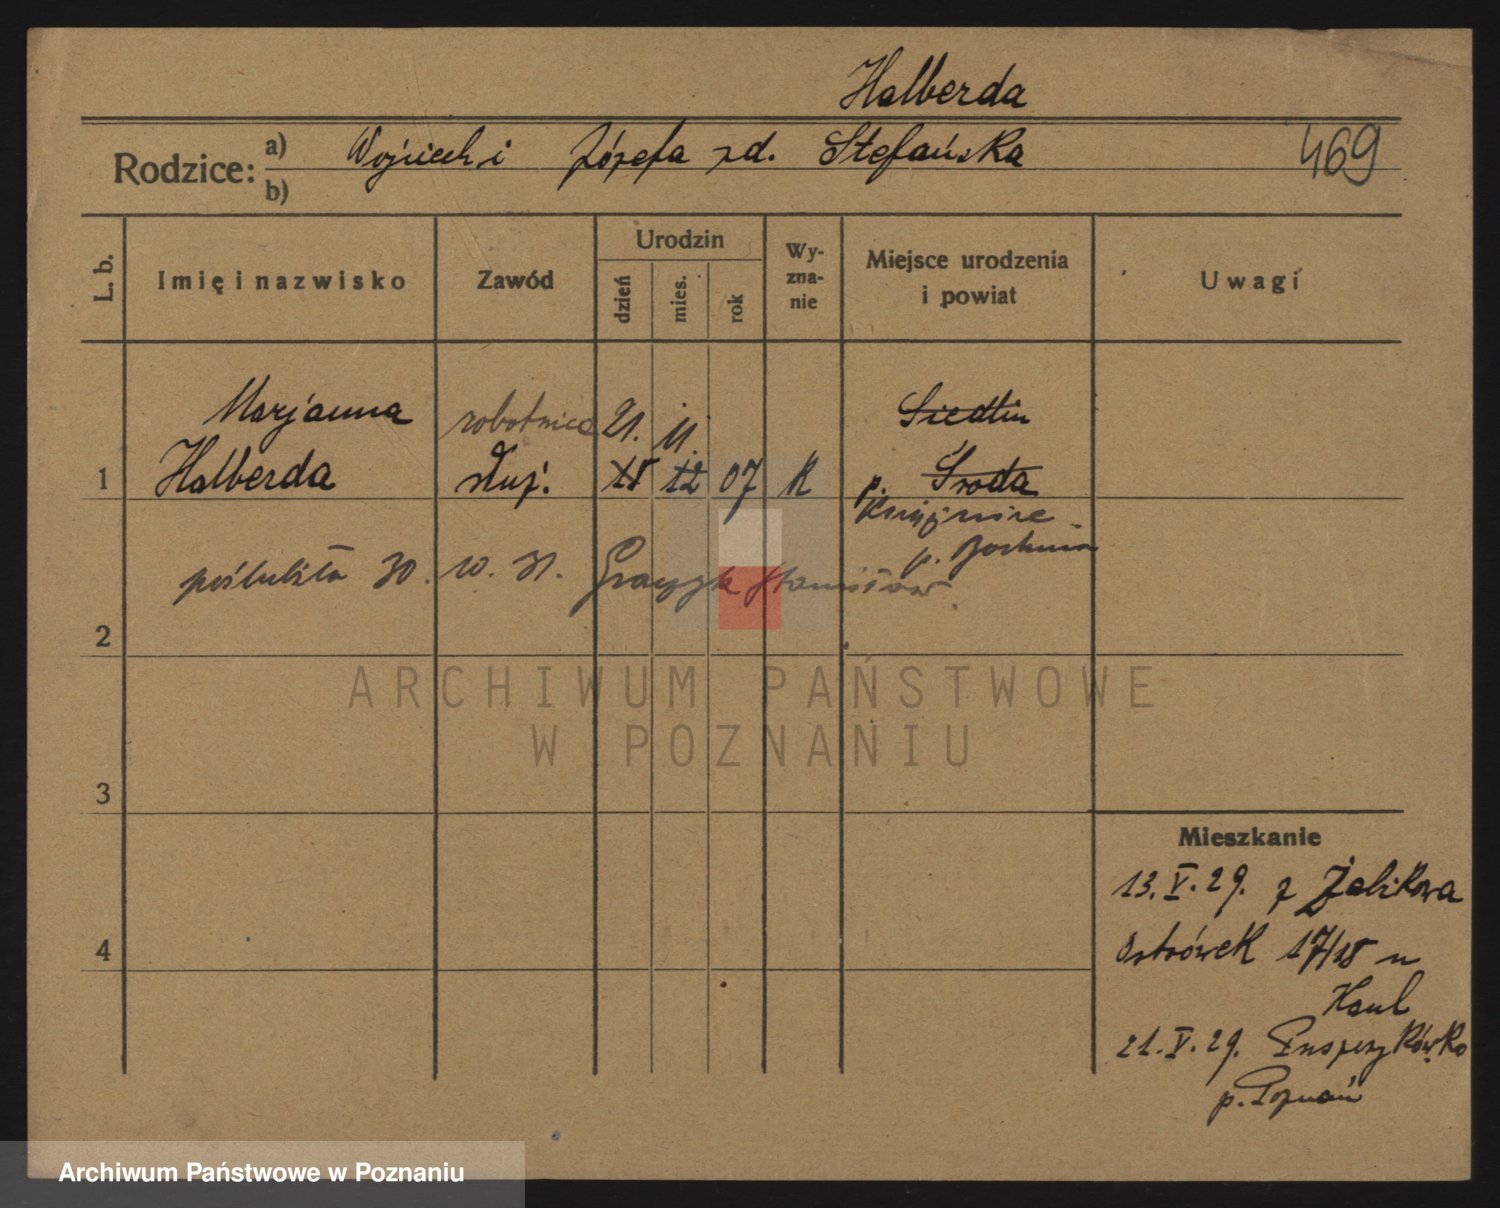 Halberda
Rodzice: a) Wojciech i Józefa zd. Stefańska
469
b)
L. b.
Imię i nazwisko
Zawód
Urodzin
dzień
mies.
rok
Wy-
zna-
nie
Miejsce urodzenia
i powiat
Uwagi
Marjanna robotnica 21. 11. Siedlin
1 Halberda służ. 18 12 07 K p. Środa
p. Bochnia
poślubiła 30. 10. 31. Graczyk Stanisław.
2
ARCHIWUM PAŃSTWOWE
W POZNANIU
3
4
Mieszkanie
13. V. 29. z Żabikowa
Ostrówek 17/18 u
Haul
21. V. 29.
p. Poznań
Archiwum Państwowe w Poznaniu